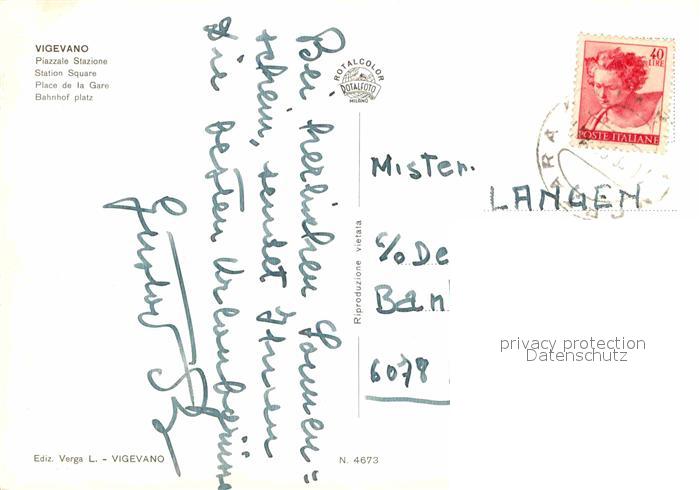 VIGEVANO
Piazzale Stazione
Station Square
Place de la Gare
Bahnhof platz
Bei herrlichem Sonnen=
schein, sendet Ihnen
die besten Urlaubsgrüsse
ROTALCOLOR
ROTALFOTO
MILANO
40
LIRE
POSTE ITALIANE
Mister.
LANGEN
c/o De
Ban
6078
Riproduzione vietata
privacy protection
Datenschutz
Ediz. Verga L. - VIGEVANO
N. 4673